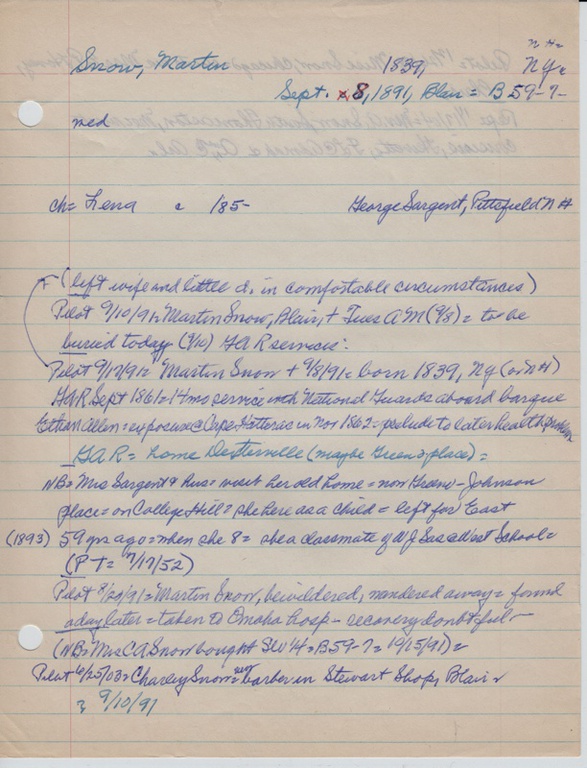 N H =
Snow, Martin 1839, N Y =
Sept. 8, 1891, Blair = B 59-7-
med
ch = Lena c 185- George Sargent, Pittsfield N H
(left wife and little d. in comfortable circumstances)
Pilot 9/10/91 = Martin Snow, Blair, + Tues A M (9/8) = to be
buried today (9/10) GAR services:
Pilot 9/17/91 = Martin Snow + 9/8/91 = born 1839, N Y (or N H)
GAR Sept 1861 = 14 mo service with National Guards aboard barque
Ethan Allen = exposure @ Cape Hatteras in Nov 1862 = prelude to later health problem
GAR = home Desterville (maybe Green's place) =
NB = Mrs Sargent & hus = visit her old home = now Greene-Johnson
place = on College Hill = she here as a child = left for East
(1893) 59 yrs ago = when she 8 = she a classmate of N J Sas @ West School =
(P T = 7/17/52)
Pilot 8/20/91 = Martin Snow, bewildered, wandered away = found
a day later = taken to Omaha hosp - recovery doubtful -
(NB = Mrs C A Snow bought SW 1/4 = B 59-7 = 10/5/91) =
Pilot 6/25/03 = Charley Snow = barber in Stewart Shop, Blair =
9/10/91